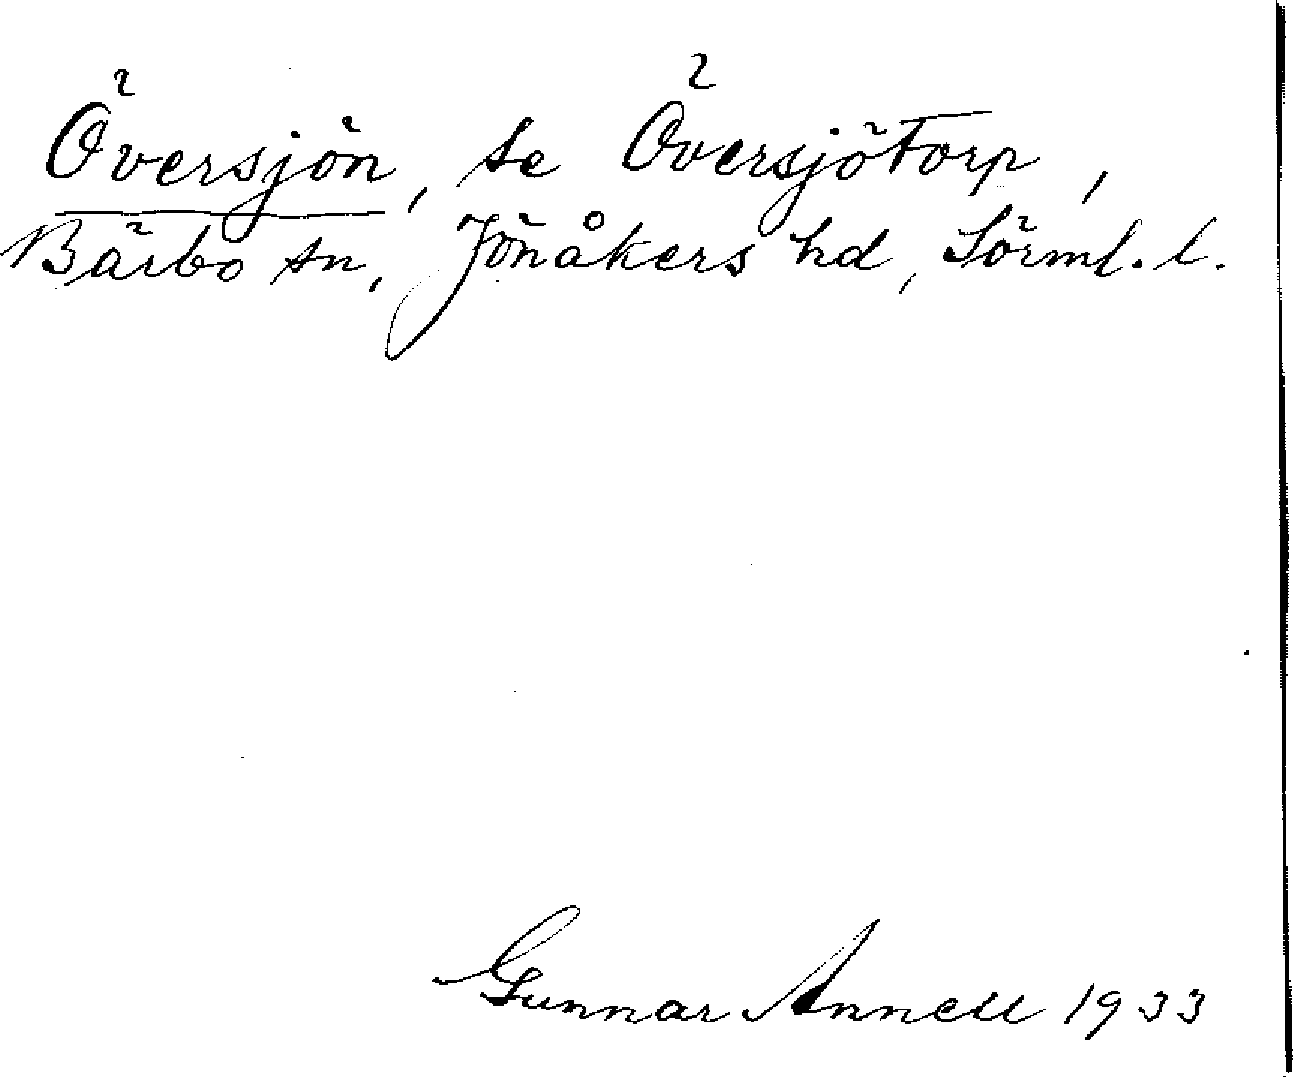 Översjön, se Översjötorp,
Bärbo sn, Jönåkers hd, Sörml. l.
Gunnar Annell 1933